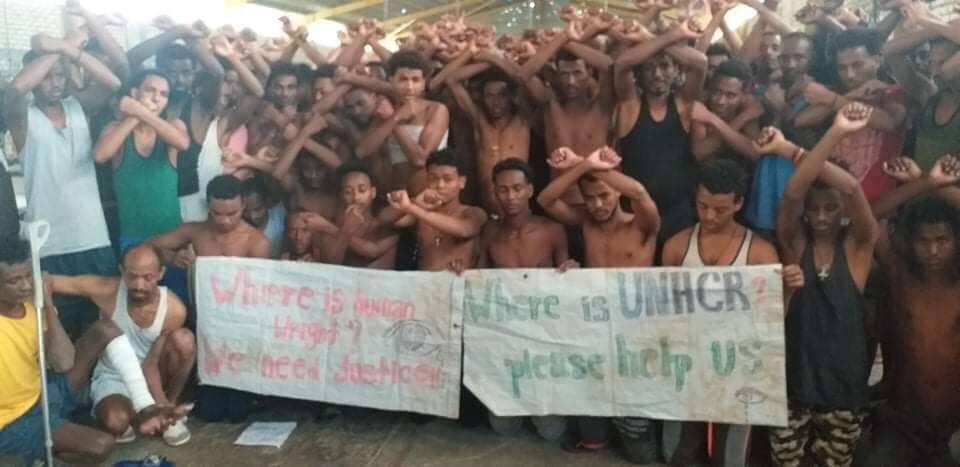 Where is human
wright?
We need Justice
Where is UNHCR?
please help US